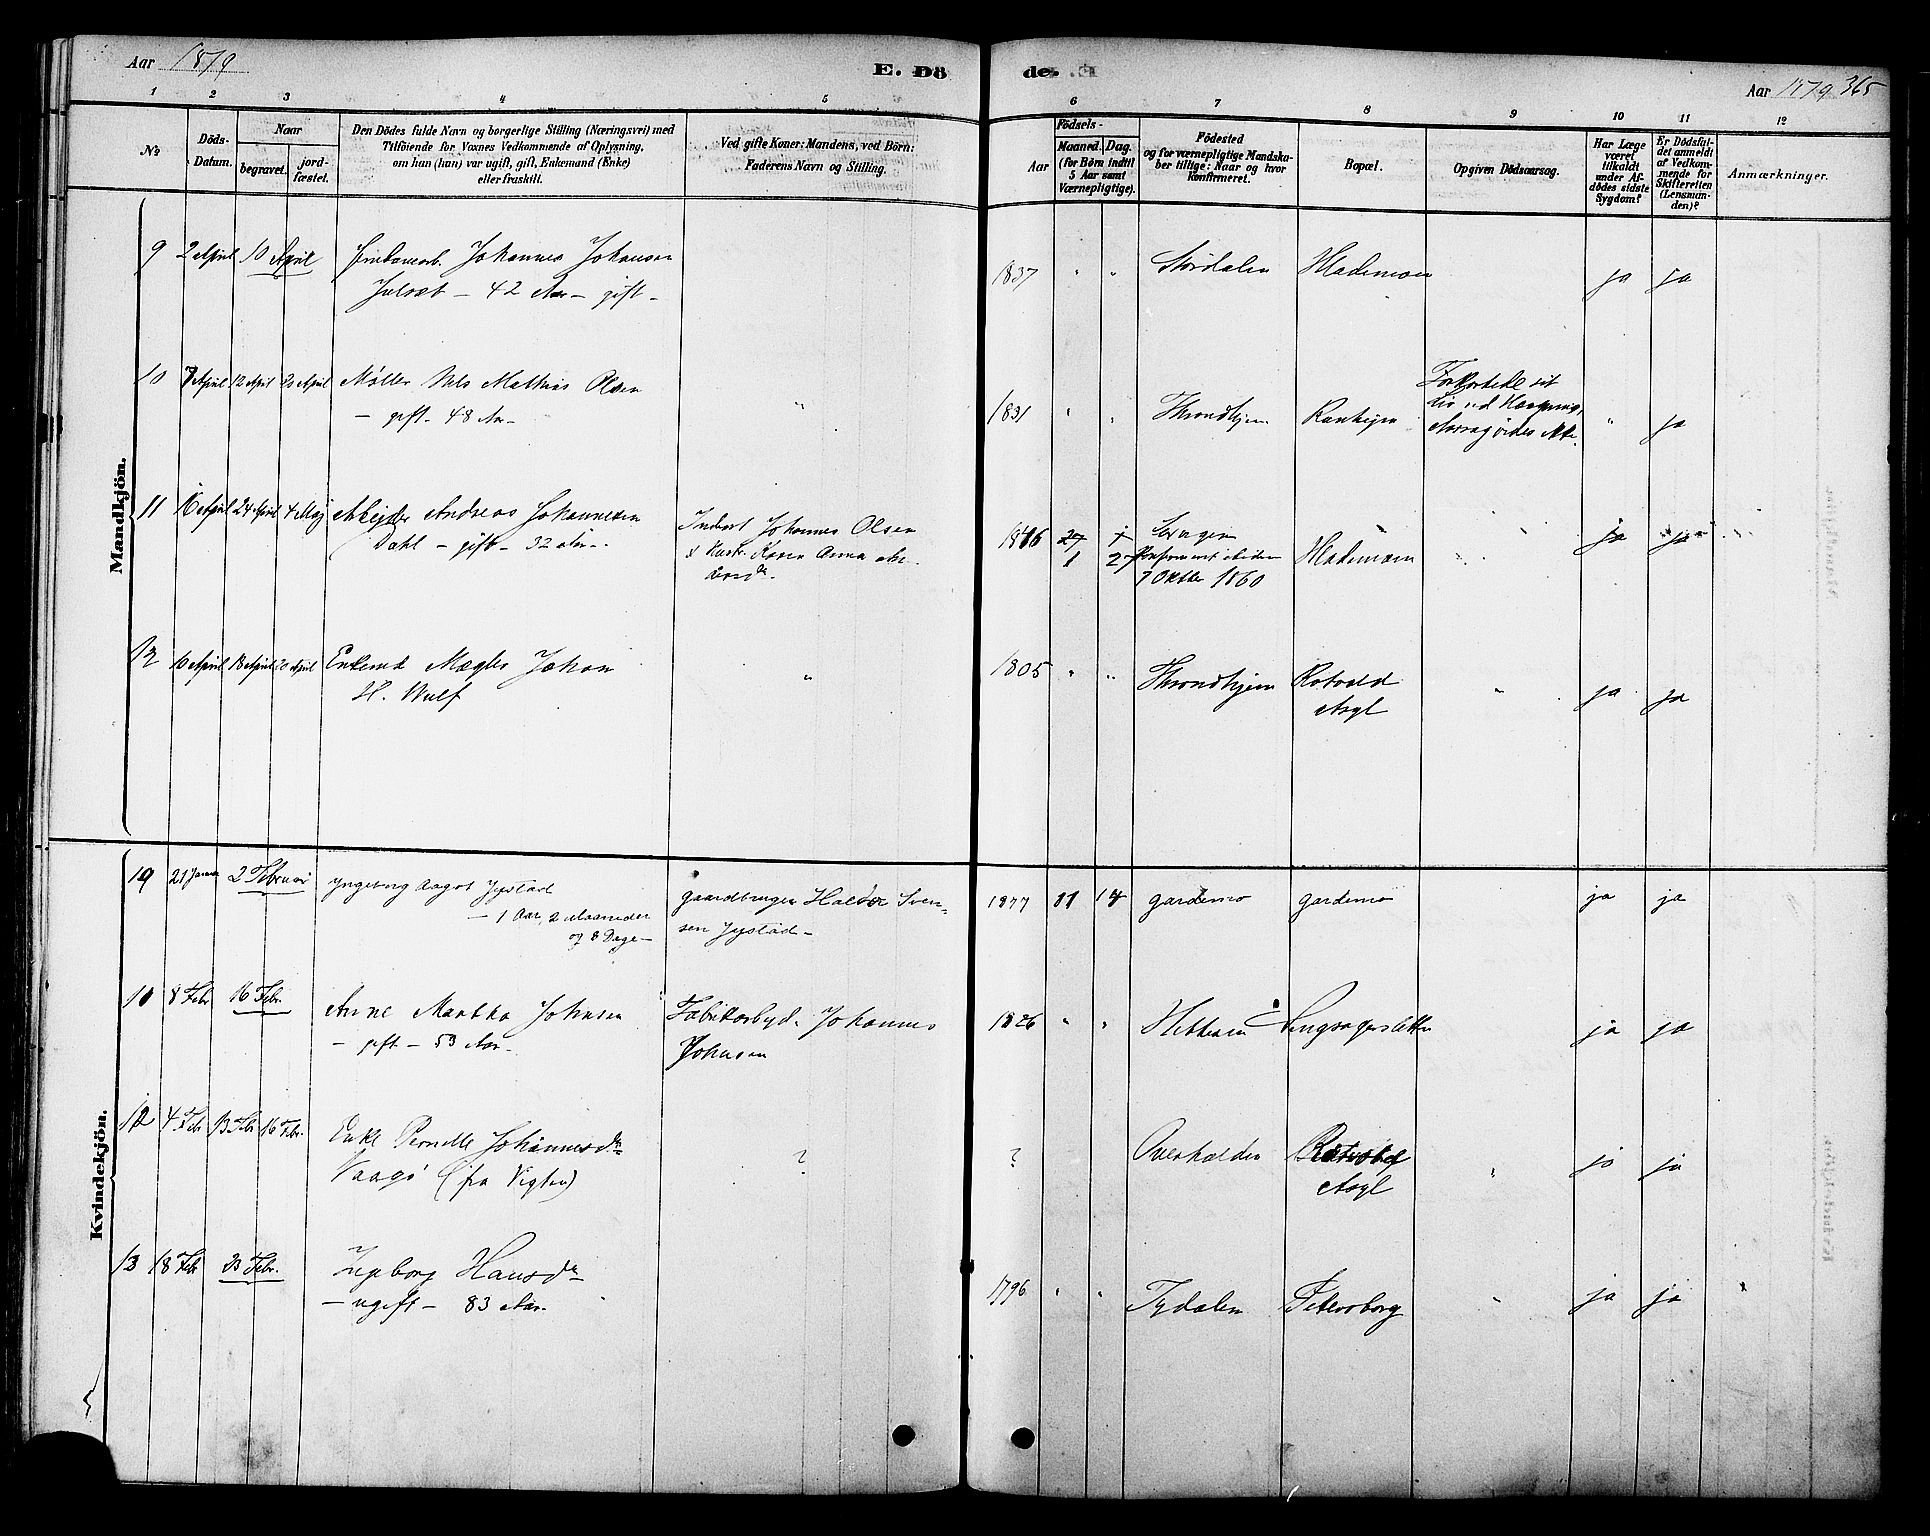 Aar 1879
E. Dö
de.
Aar 1879 365
1 2 3 4 5 6 7 8 9 10 11 12
No
Döds-
Datum.
Naar
begravet.
jord-
fæstet.
Den Dödes fulde Navn og borgerlige Stilling (Næringsvei) med
Tilföiende for Voxnes Vedkommende af Oplysning,
om han (hun) var ugift, gift, Enkemand (Enke)
eller fraskilt.
Ved gifte Koner: Mandens, ved Börn:
Faderens Navn og Stilling.
Födsels-
Aar
Maaned. Dag.
(for Börn indtil
5 Aar samt
Værnepligtige).
Födested
og for værnepligtige Mandska-
ber tillige: Naar og hvor
konfirmeret.
Bopæl.
Opgiven Dödsaarsag.
Har Læge
været
tilkaldt
under Af-
dödes sidste
Sygdom?
Er Dödsfal-
det anmeldt
af Vedkom-
mende for
Skifteretten
(Lensman-
den)?
Anmærkninger.
Mandkjön.
9 2 April 10 April Johannes Johansen
42 Aar - gift -
1837 " " Hlademoen ja ja
10 7 April 12 April 20 April Møller Nils Mathias Olsen
- gift - 48 Aar -
" 1831 " " Throndhjem Ranheim
Forkortede sit
Liv ved Hængning,
" ja
11 16 April 24 April 4 Maj Arbeider Andreas Johannesen
Dahl - gift - 32 Aar -
Inderst Johannes Olsen
& Hustr. Karen Anna
1846
1 27
7 Oktbr 1860
Hlademoen " ja ja
12 10 April 18 April 20 April Enkemd Mægler Johan
H. Wulf
" 1805 " " Throndhjem Rotvold
Asyl
" ja ja
Kvindekjön.
10 21 Januar 2 Februar Yngeborg Aagot Jystad
- 1 Aar, 2 Maaneder
og 8 Dage -
gaardbruger Haldor Sven-
sen Jystad -
1877 11 14 gardemo gardemo ja ja
11 8 Febr 16 Febr. Anne Martha Johnsen
- gift - 53 Aar -
Fabrikarbyd. Johannes
Johnsen
1826 " " Hitteren ja ja
12 4 Febr 13 Febr 16 Febr. Enke Pernille Johannesdr
Vaagö (fra Vigten)
? ? Overhalden
Asyl
" ja ja
13 18 Febr 23 Febr. Ingeborg Hansdr
- ugift - 83 Aar.
1796 " " Tydalen Petersborg " ja ja